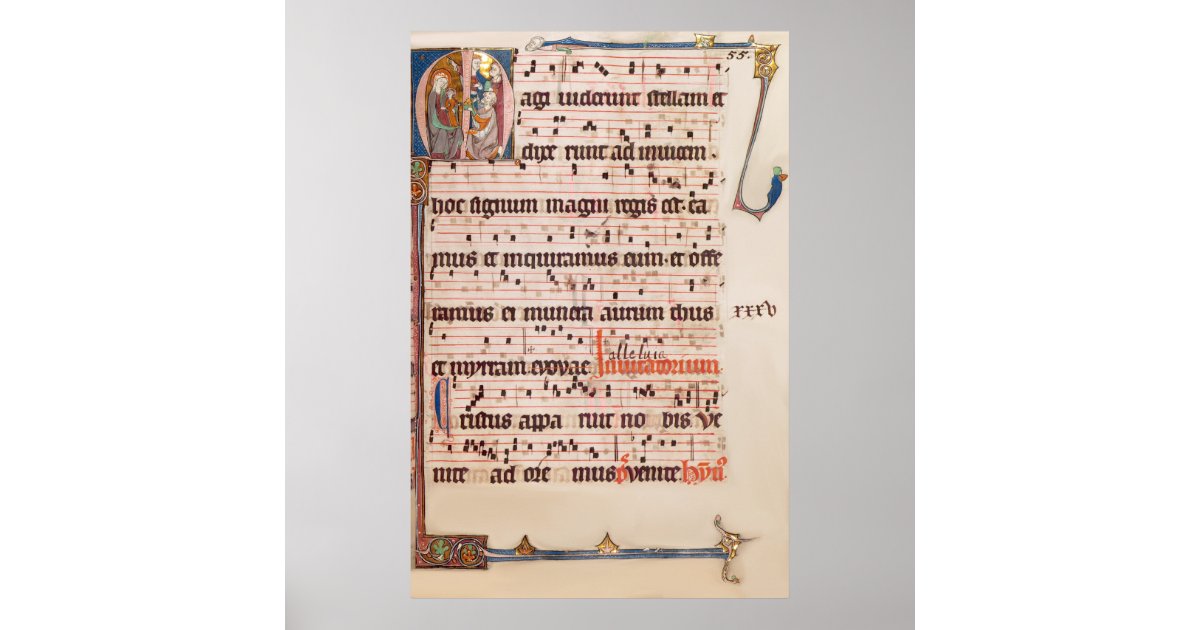 55.
Magi uiderunt stellam et
dixe runt ad inuicem.
hoc signum magni regis est. ea
mus et inquiramus eum. et offe
ramus ei munera aurum thus
xxxv
alleluia
et myrram. evovae. Inuitatorium
Cristus appa ruit no bis. Ve
nite ad ore mus venite.